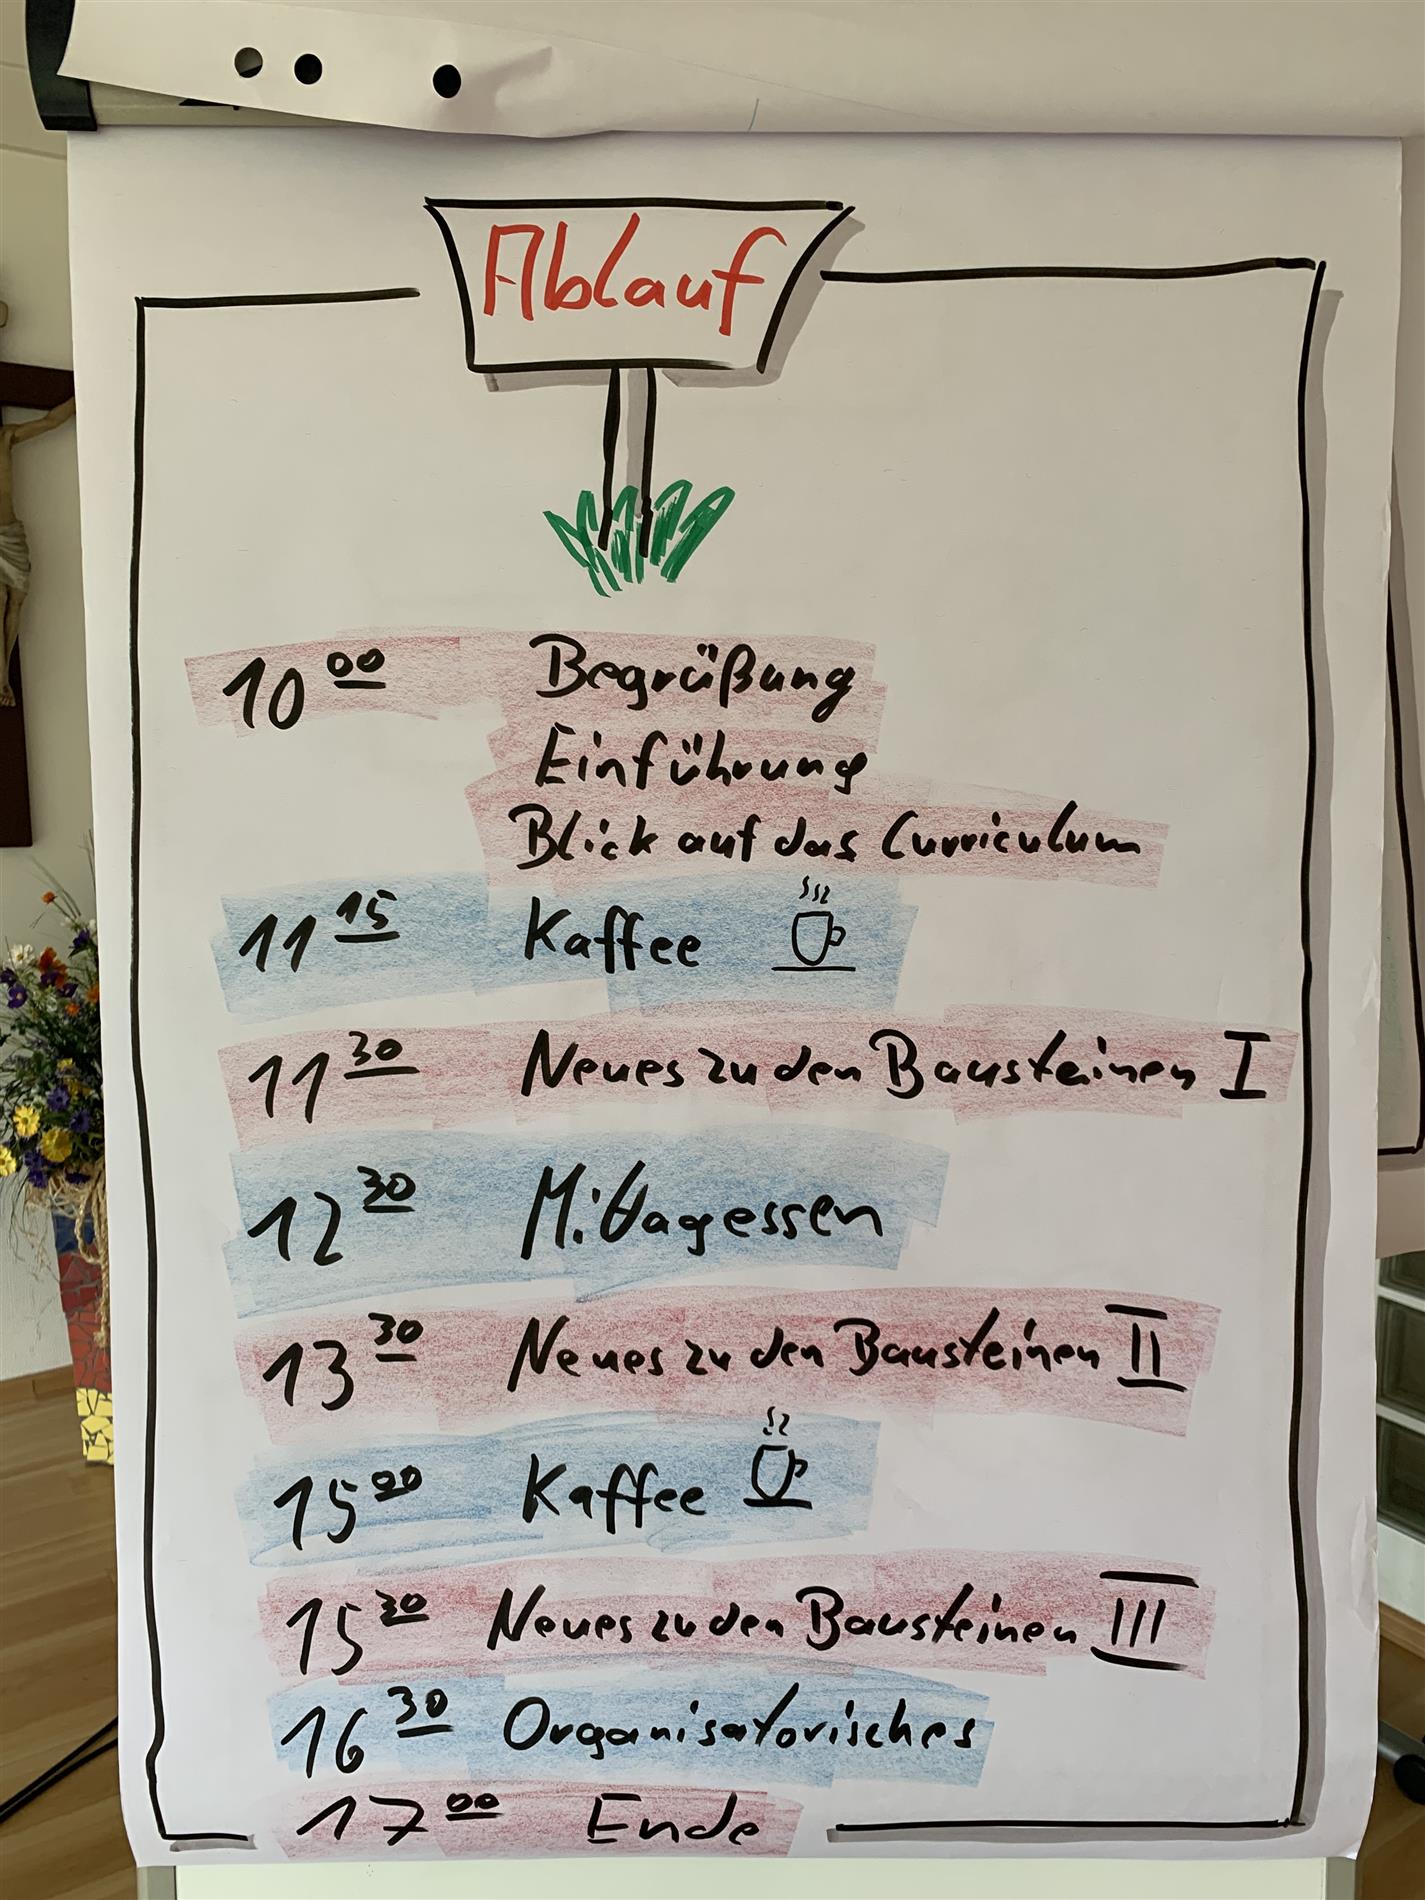 Ablauf
10 00 Begrüßung
Einführung
Blick auf das Curriculum
11 15 Kaffee
11 30 Neues zu den Bausteinen I
12 30 Mittagessen
13 30 Neues zu den Bausteinen II
15 00 Kaffee
15 30 Neues zu den Bausteinen III
16 30 Organisatorisches
17 00 Ende